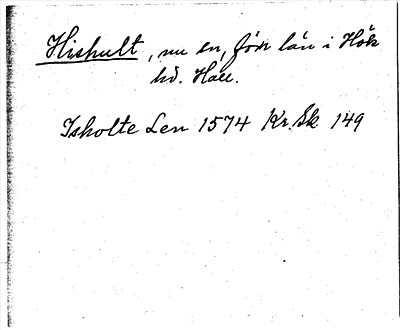 Hishult, nu en, förr län i Höks
hd. Hall.
Isholte Len 1574 Kr. Sk. 149